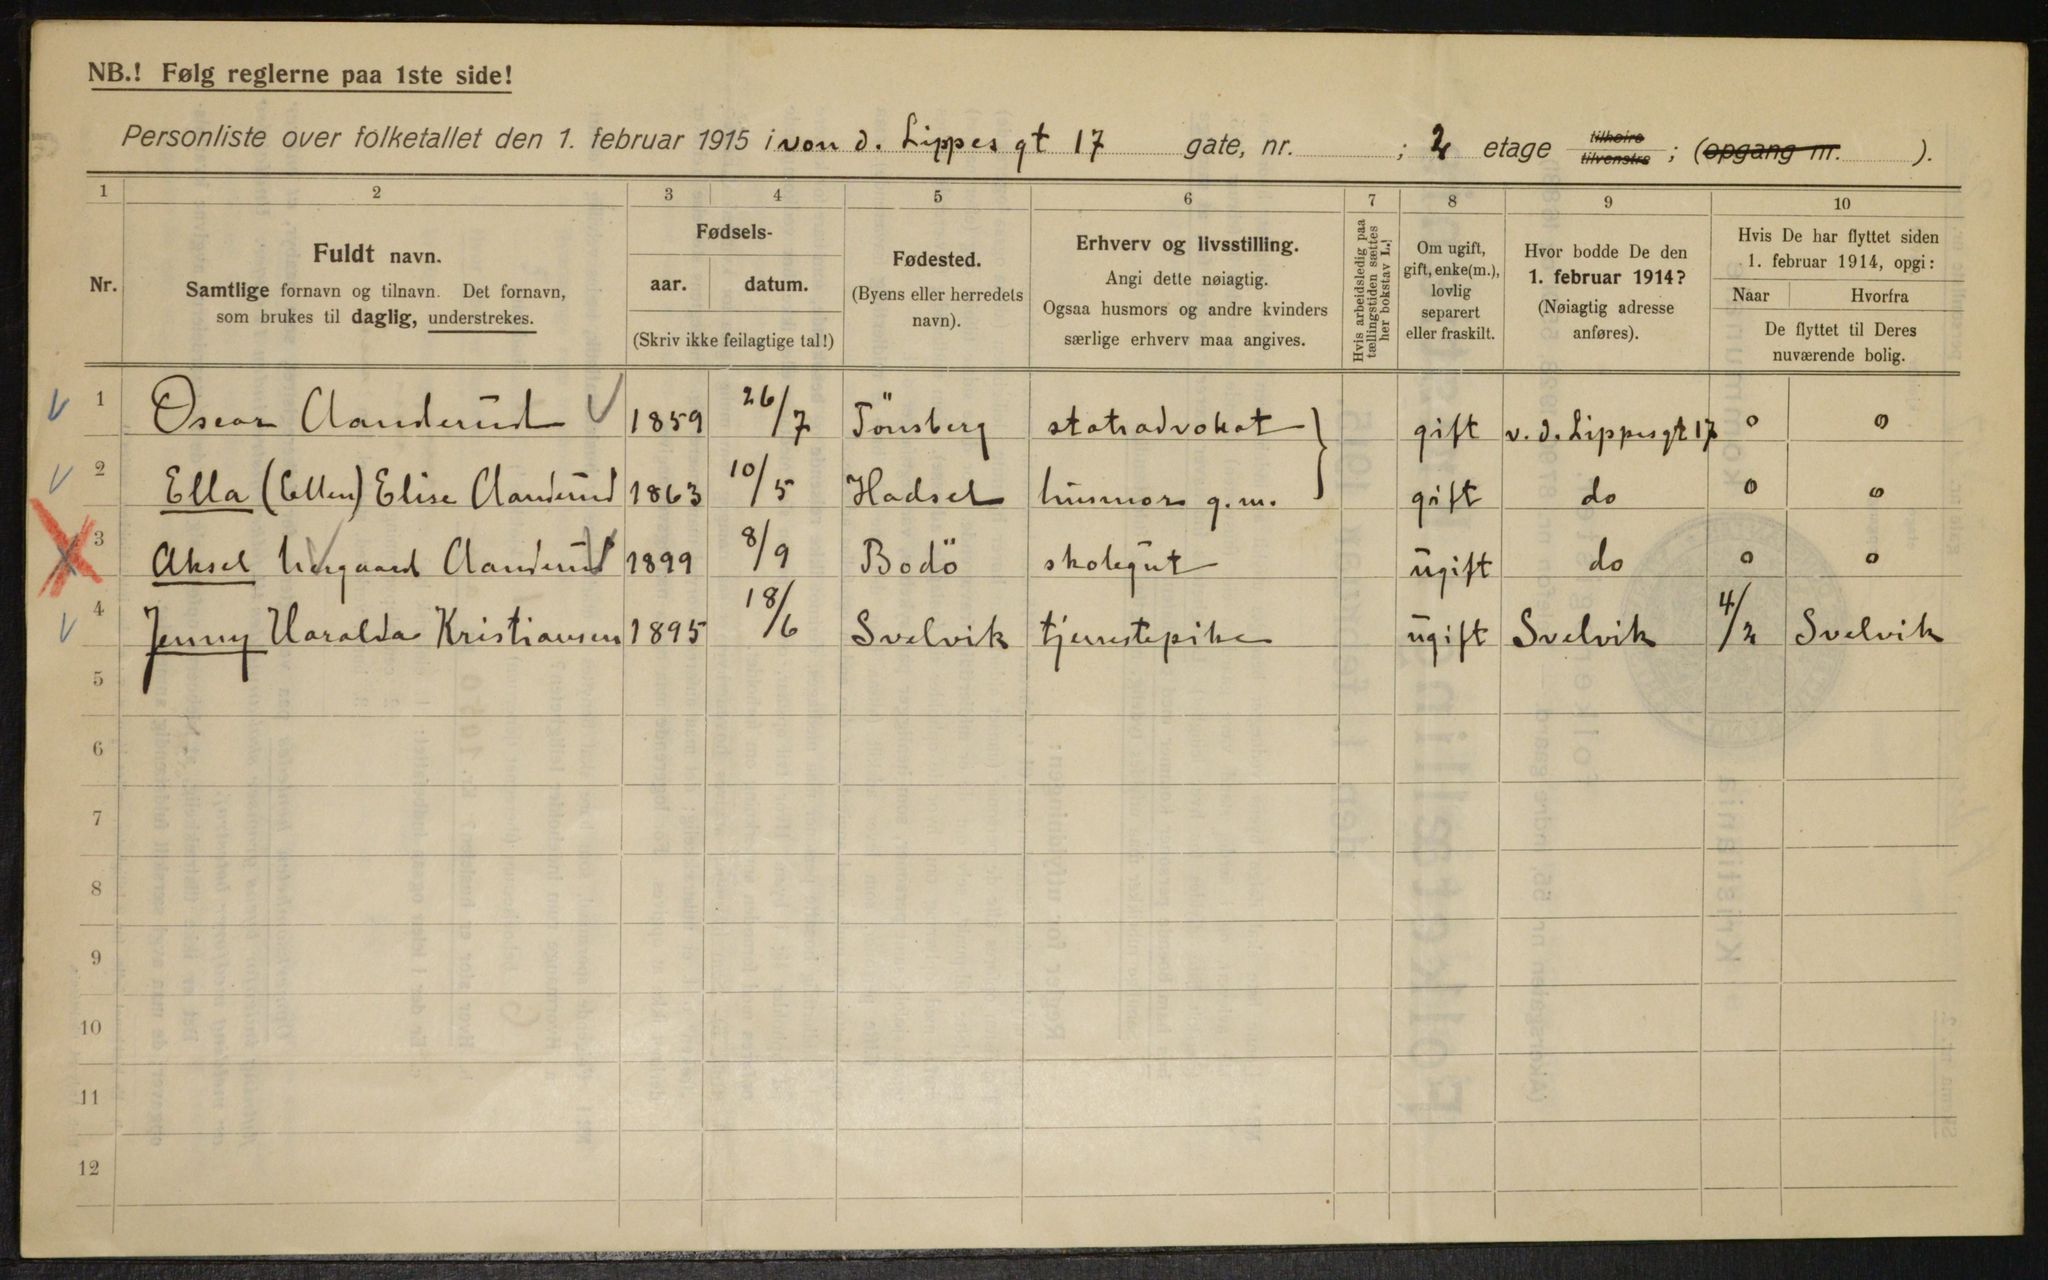 NB.! Følg reglerne paa 1ste side!
Personliste over folketallet den 1. februar 1915 i von d. Lippes gt 17 gate, nr. ; 2 etage tilhøire tilvenstre ; (opgang nr. ).
1 2 3 4 5 6 7 8 9 10
Nr.
Fuldt navn.
Samtlige fornavn og tilnavn. Det fornavn,
som brukes til daglig, understrekes.
Fødsels-
aar. datum.
(Skriv ikke feilagtige tal!)
Fødested.
(Byens eller herredets
navn).
Erhverv og livsstilling.
Angi dette nøiagtig.
Ogsaa husmors og andre kvinders
særlige erhverv maa angives.
Hvis arbeidsledig paa
tællingstiden sættes
her bokstav L.)
Om ugift,
gift, enke(m.),
lovlig
separert
eller fraskilt.
Hvor bodde De den
1. februar 1914?
(Nøiagtig adresse
anføres).
Hvis De har flyttet siden
1. februar 1914, opgi:
Naar Hvorfra
De flyttet til Deres
nuværende bolig.
1 Oscar Aanderud 1859 26/7 Tönsberg statsadvokat gift v. d. Lippesgt 17 o o
2 Ella (Ellen) Elise Aanderud 1863 10/5 Hadsel husmor g.m. gift do o o
3 Aksel Aanderud 1899 8/9 Bodö skolegut ugift do o o
4 Jenny Haralda Kristiansen 1895 18/6 Svelvik tjenestepike ugift Svelvik 4/2 Svelvik
5
6
7
8
9
10
11
12